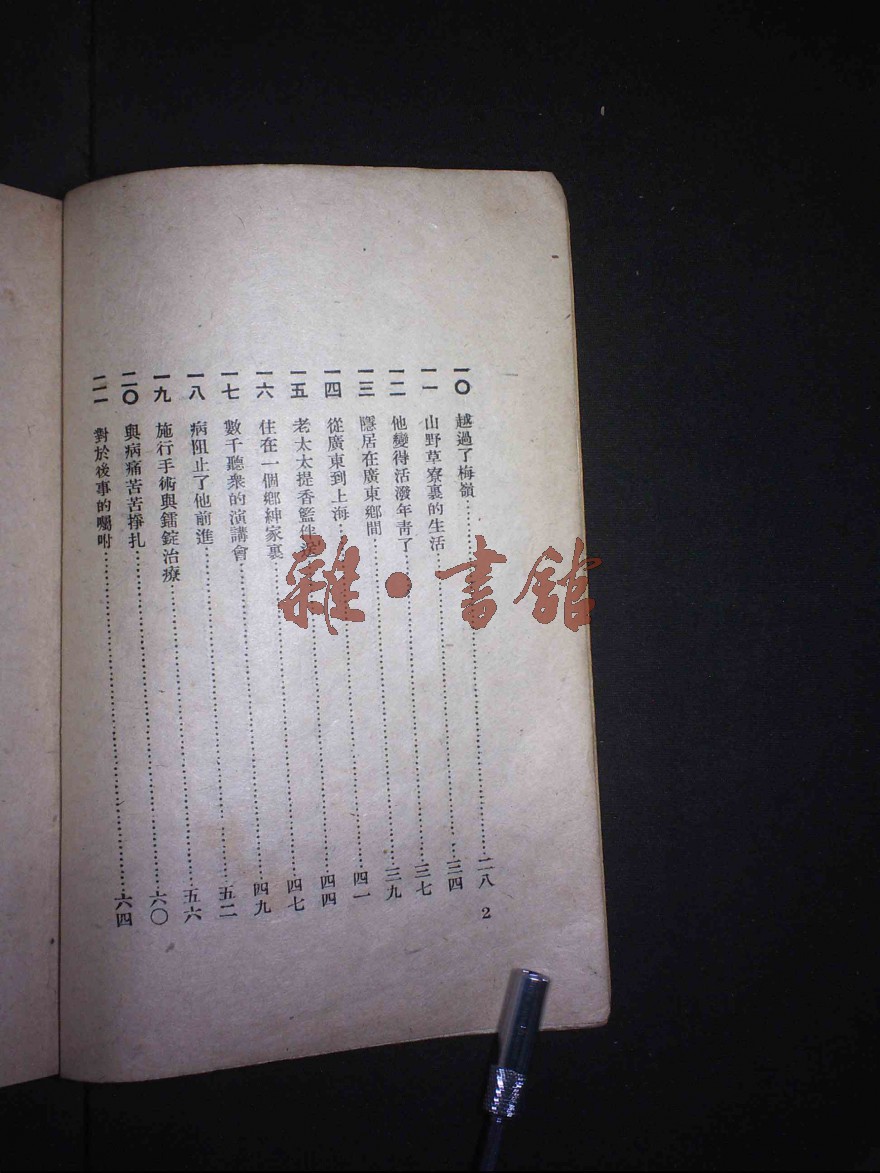 一〇 越過了梅嶺……二八
一一 山野草寮裏的生活……三四
一二 他變得活潑年青了……三七
一三 隱居在廣東鄉間……三九
一四 從廣東到上海……四一
一五 老太太提香籃伴……四四
一六 住在一個鄉紳家裏……四七
一七 數千聽衆的演講會……四九
一八 病阻止了他前進……五二
一九 施行手術與鐳錠治療……五六
二〇 與病痛苦苦掙扎……六〇
二一 對於後事的囑咐……六四
2
雜·書館